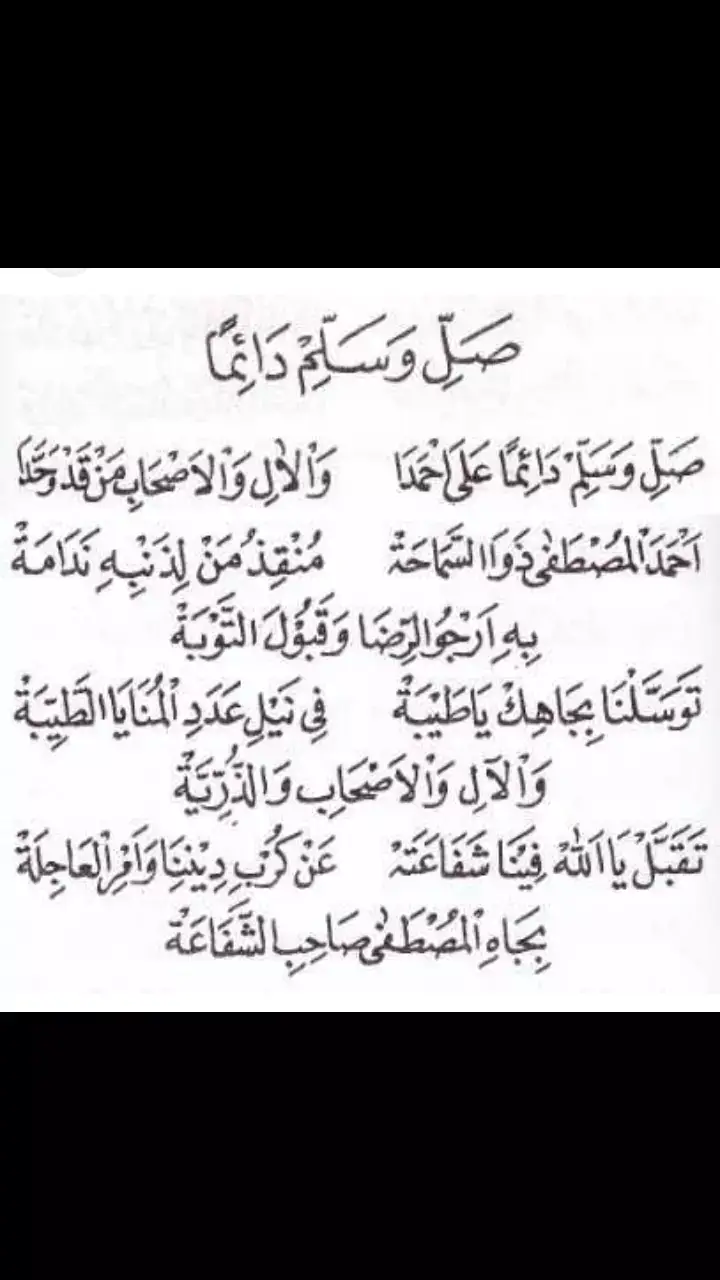 صَلِّ وَسَلِّمْ دَائِمًا
صَلِّ وَسَلِّمْ دَائِمًا عَلَى اَحْمَدَا وَاْلاٰلِ وَاْلاَصْحَابِ مَنْ قَدْ وَحَّدَا
اَحْمَدَ الْمُصْطَفٰى ذَوَا السَّمَاحَةْ مُنْقِذُ مَنْ لِذَنْبِهِ نَدَامَةْ
بِهِ اَرْجُوا الرِّضَا وَقَبُوْلَ التَّوْبَةْ
تَوَسَّلْنَا بِجَاهِكْ يَا طَيْبَةْ فِى نَيْلِ عَدَدِ الْمُنَايَا الطَّيِّبَةْ
وَاْلآلِ وَاْلاَصْحَابِ وَالذُّرِّيَّةْ
تَقَبَّلْ يَا اَللهْ فِيْنَا شَفَاعَتَهْ عَنْ كُرْبِ دِيْنِنَا وَاَمْرِ الْعَاجِلَةْ
بِجَاهِ الْمُصْطَفٰى صَاحِبِ الشَّفَاعَةْ